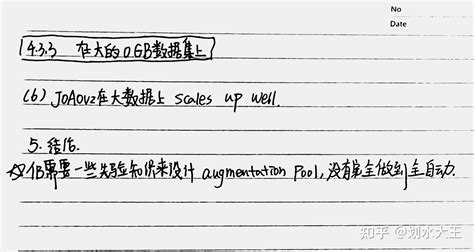 No
Date
4.3.3 在大的OGB数据集上
(6) JOAOv2在大数据上 scales up well.
5. 结论.
仍需要一些先验知识来设计 augmentation pool, 没有完全做到全自动.
知乎 @划水大王